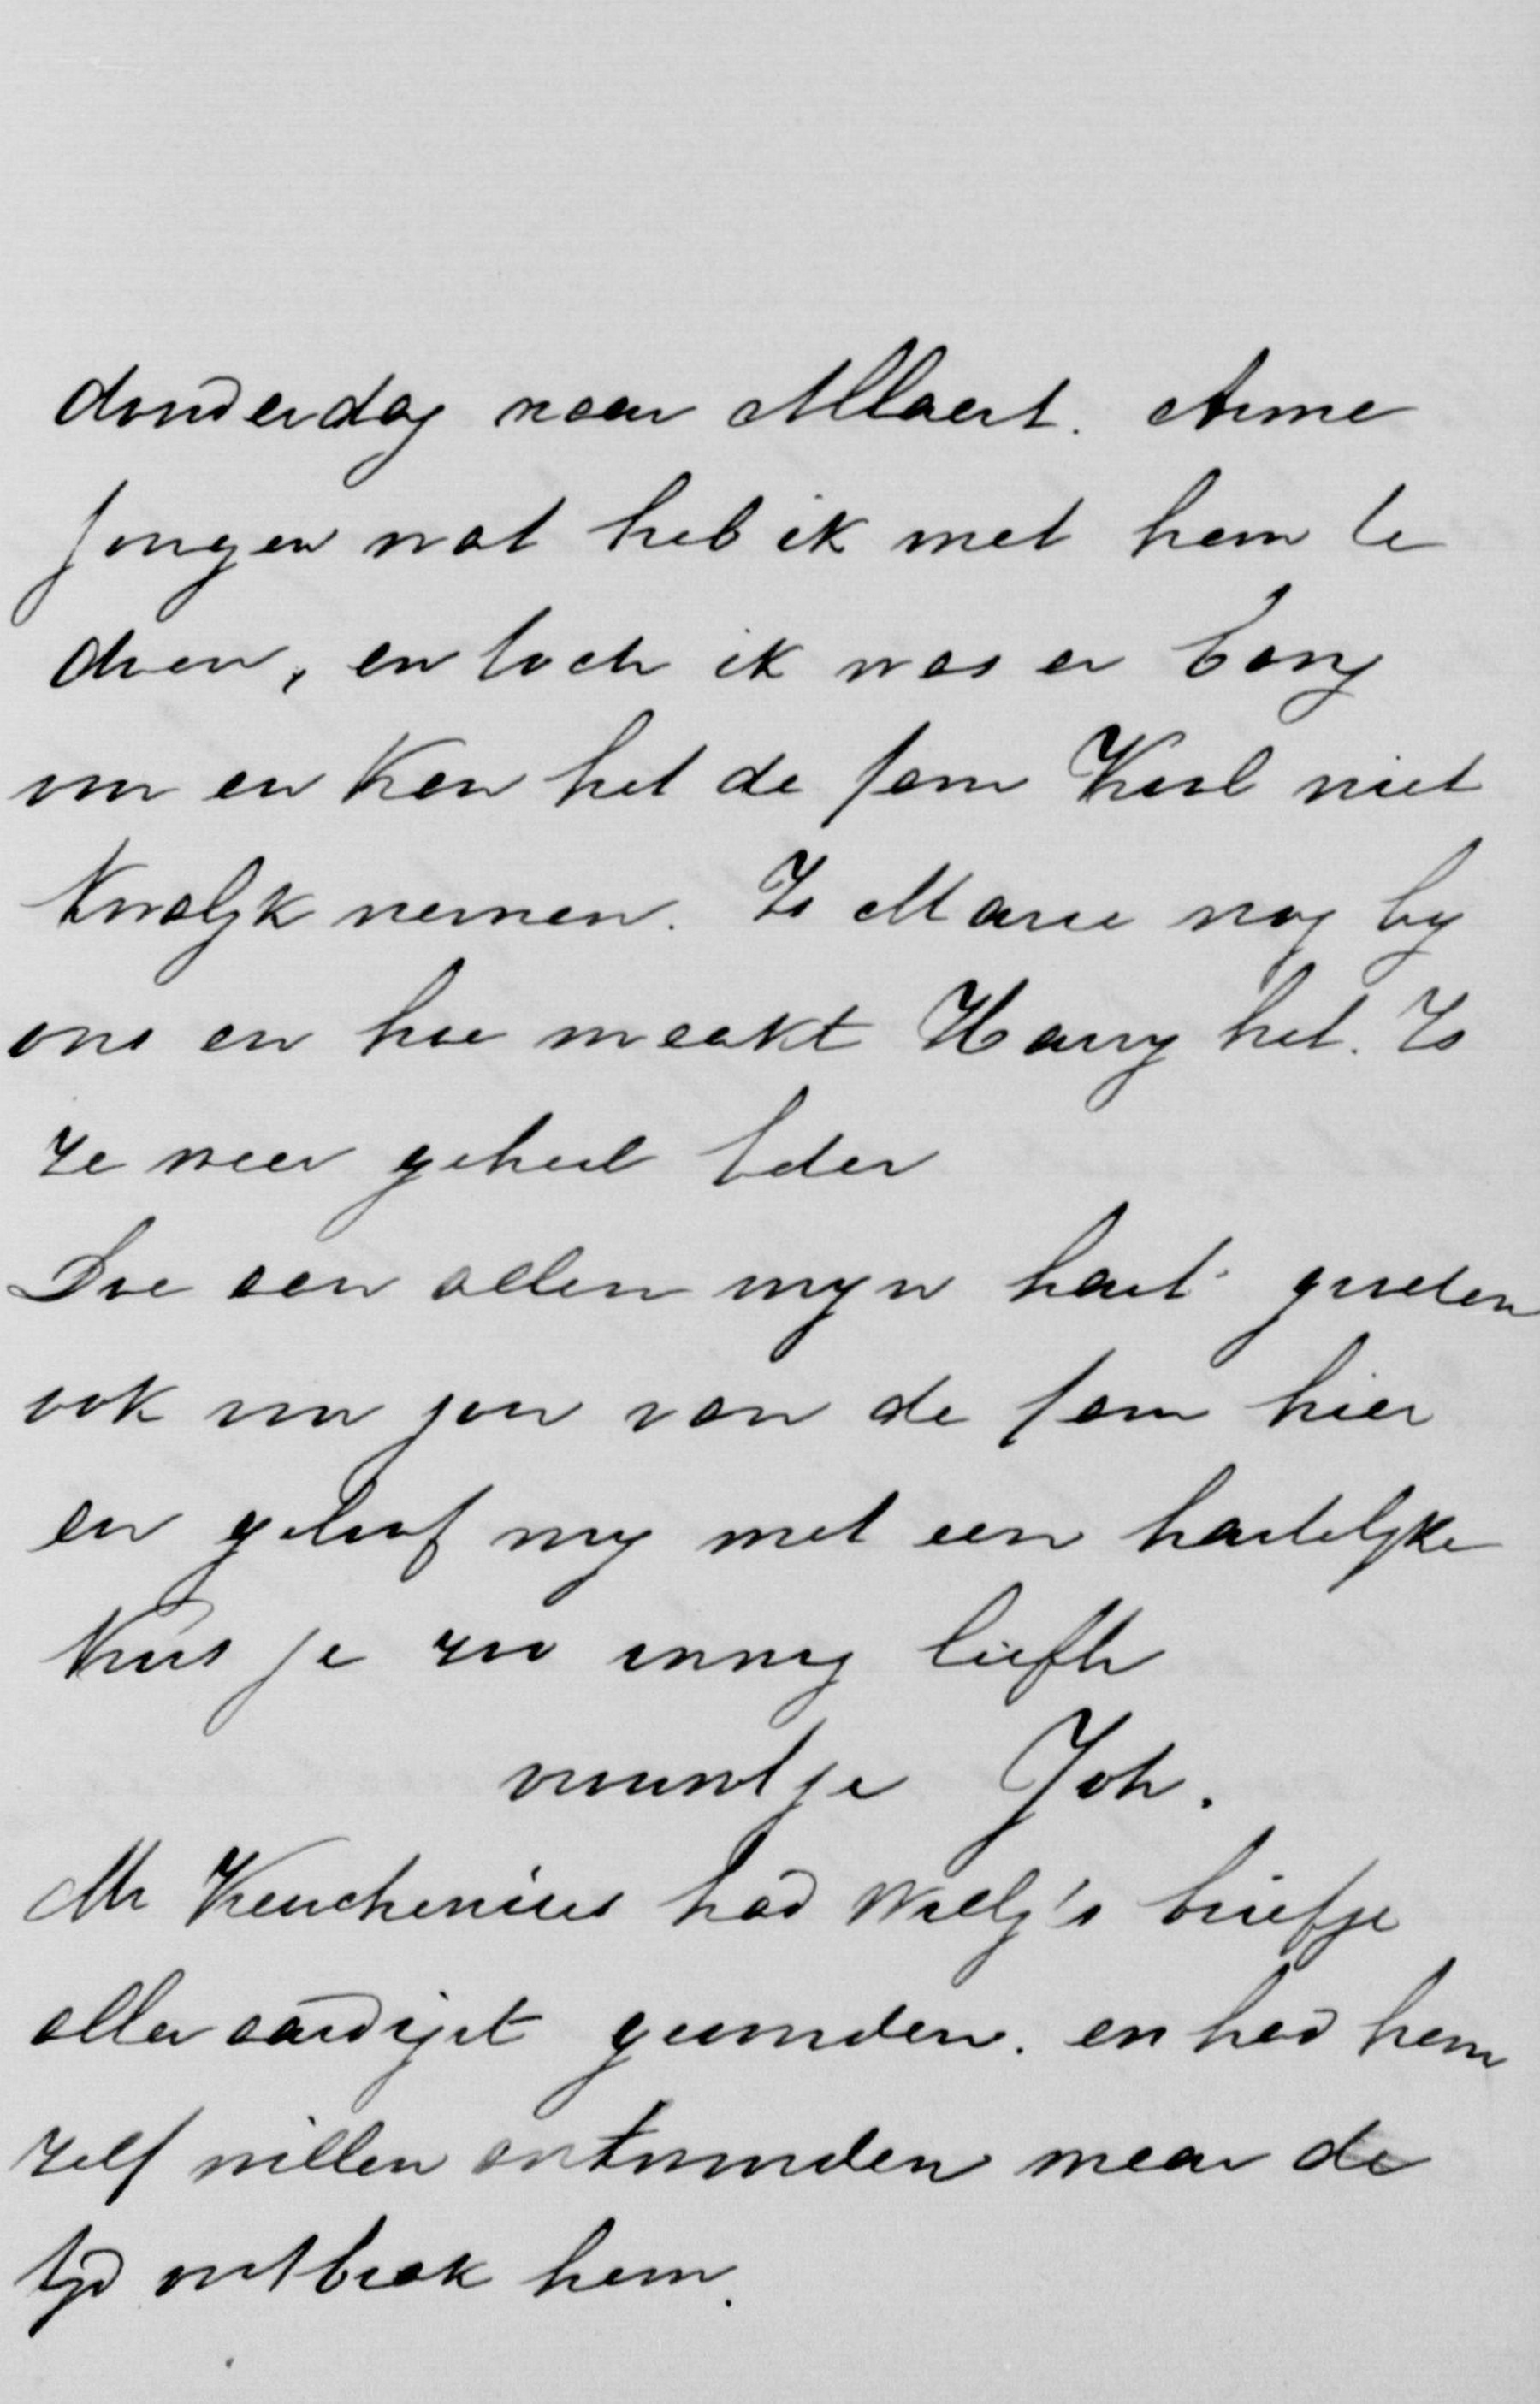 donderdag naar Allaert. Arme
jongen wat heb ik met hem te
doen, en toch ik was er bang
voor en kan het de fam Kool niet
kwalyk nemen. Is Marie nog by
ons en hoe maakt Harry het. Is
ze weer geheel beter
Doe aan allen myn hart groeten
ook voor jou van de fam hier
en geloof my met een hartelyke
kus je zoo innig liefh
vrouwtje Joh.
Mr Keuchenius had Willy's briefje
aller aardigst gevonden. en had hem
zelf willen antwoorden maar de
tyd ontbrak hem.